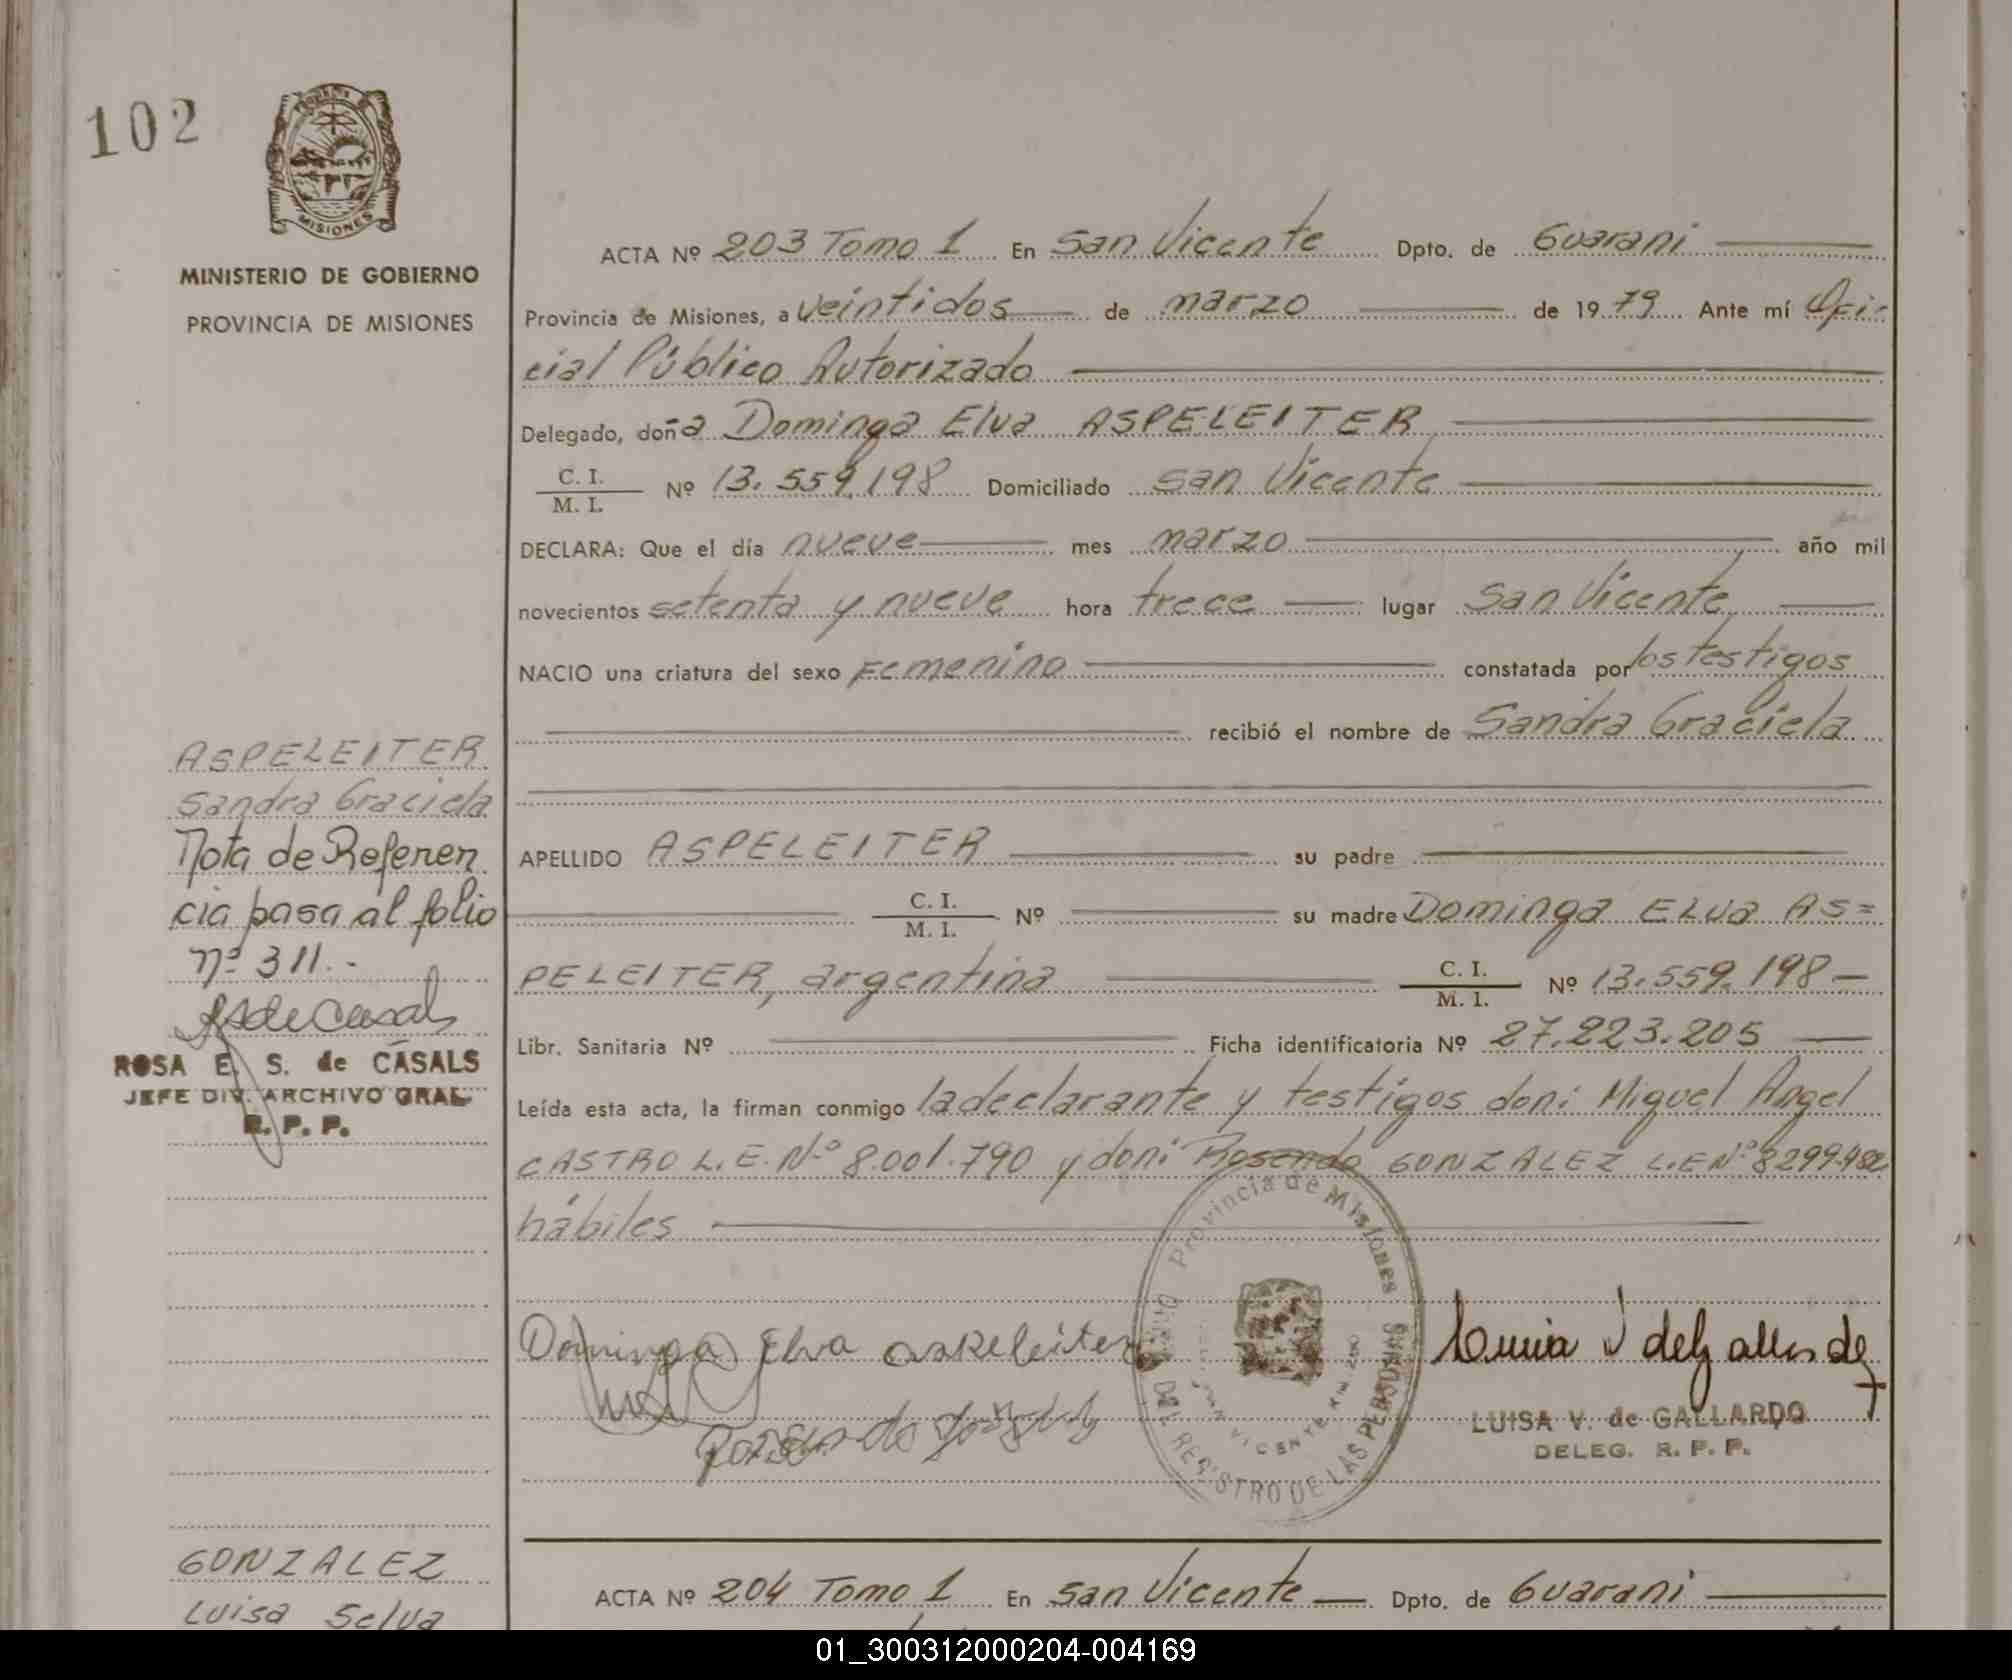 102
MISIONES
MINISTERIO DE GOBIERNO
PROVINCIA DE MISIONES
ACTA Nº 203 Tomo 1 En San Vicente Dpto. de Guarani
Provincia de Misiones, a veintidos de marzo de 1979 Ante mí Ofi-
cial Público Autorizado
Delegado, doña Dominga Elva ASPELEITER
C. I.
M. I.
Nº 13.559.198 Domiciliado San Vicente
DECLARA: Que el día nueve mes marzo año mil
novecientos setenta y nueve hora trece lugar San Vicente
NACIO una criatura del sexo Femenino constatada por los testigos
recibió el nombre de Sandra Graciela
APELLIDO ASPELEITER su padre
C. I.
M. I.
Nº su madre Dominga ELva AS=
PELEITER, argentina C. I.
M. I.
Nº 13.559.198-
Libr. Sanitaria Nº Ficha identificatoria Nº 27.223.205
Leída esta acta, la firman conmigo la declarante y testigos don: Miguel Angel
CASTRO L.E.Nº 8.001.790 y don: Rosendo GONZALEZ L.E Nº 8299.482
hábiles
Dominga Elva askeleiter
Provincia de Misiones
DEL REGISTRO DE LAS PERSONAS
SAN VICENTE
LUISA V. de GALLARDO
DELEG. R. P. P.
ASPELEITER
Sandra Graciela
Nota de Referen
cia pasa al folio
nº 311.-
RSdeCasals
ROSA E. S. de CASALS
JEFE DIV. ARCHIVO GRAL.
R. P. P.
GONZALEZ
Luisa Selva
ACTA Nº 204 Tomo 1 En San Vicente Dpto. de Guarani
01_300312000204-004169